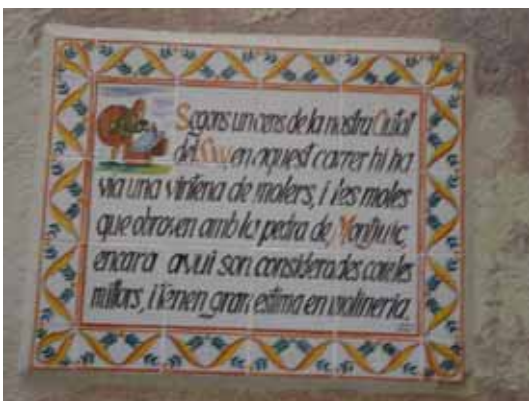 Segons un cens de la nostra Ciutat
del en aquest carrer hi ha
via una vintena de molers, i les moles
que obraven amb la pedra de Montjuic,
encara avui son considerades com les
millors, i tenen gran estima en molineria.